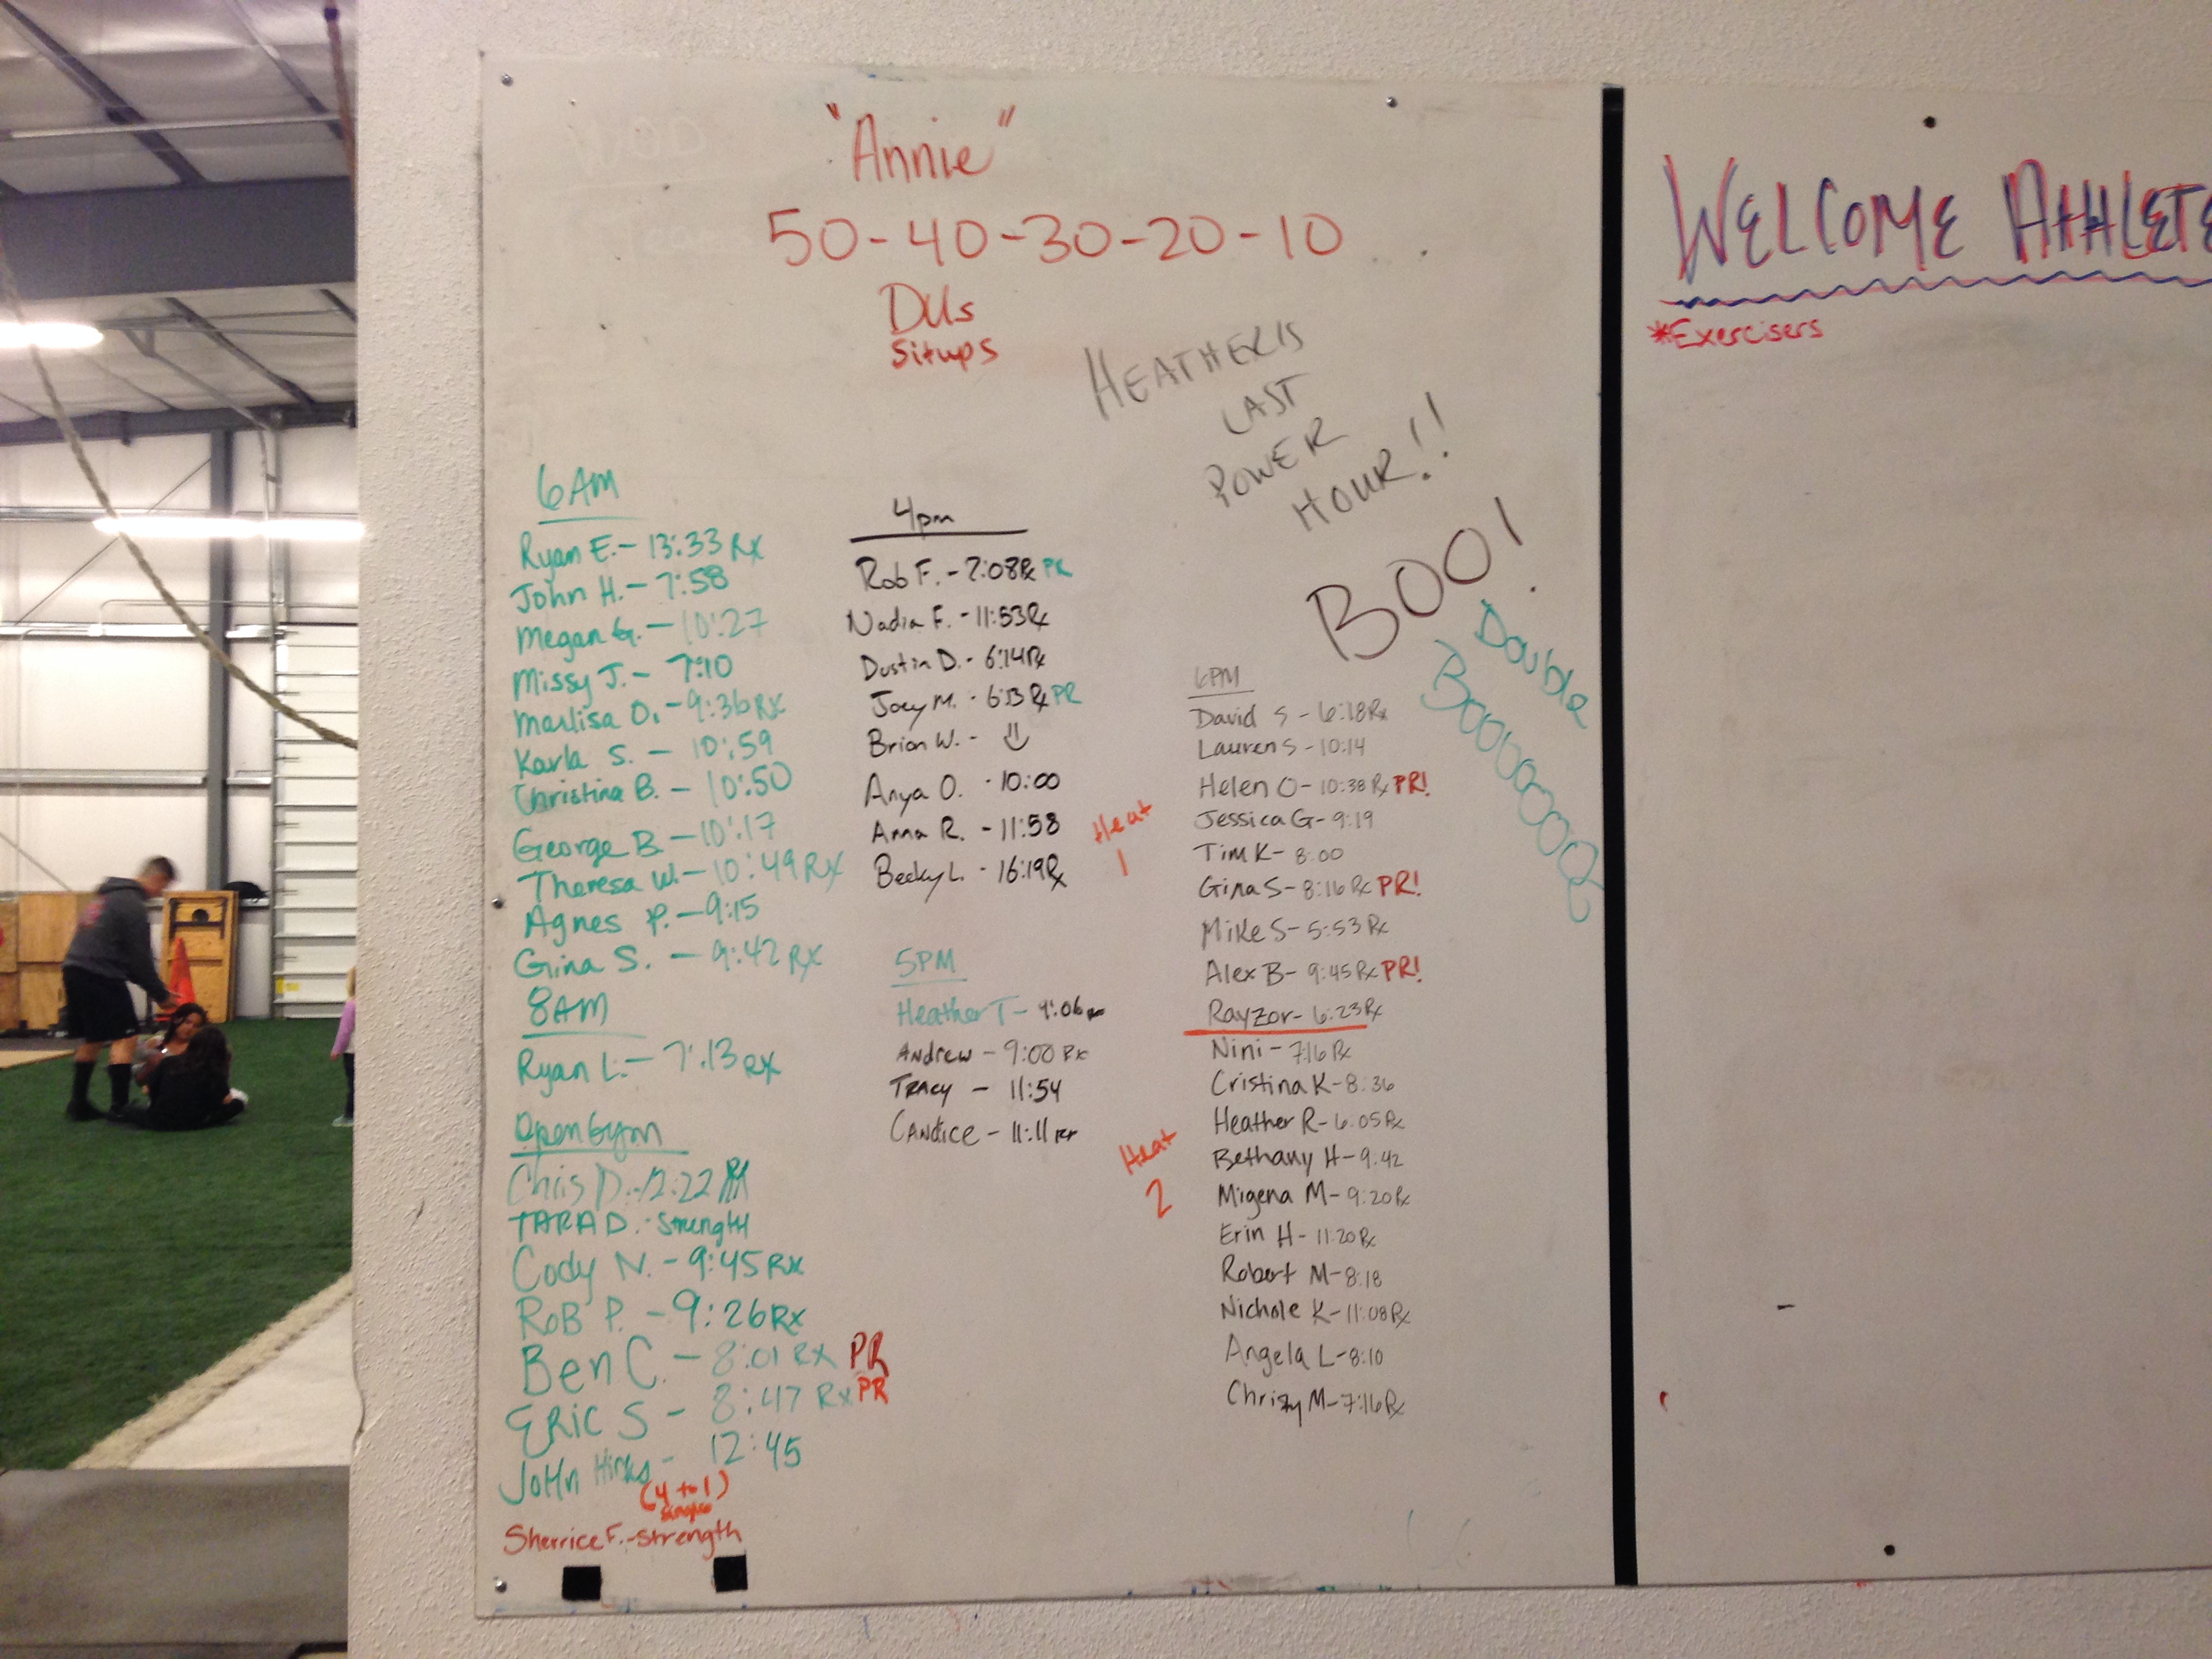 "Annie"
50-40-30-20-10
DUs
Situps
HEATHER'S
LAST
POWER
HOUR!!
BOO!
Double
Booooooooo
6AM
Ryan E. - 13:33 Rx
John H. - 7:58
Megan G. - 10:27
Missy J. - 7:10
Marlisa O. - 9:36 Rx
Karla S. - 10:59
Christina B. - 10:50
George B. - 10:17
Theresa W. - 10:49 RX
Agnes P. - 9:15
Gina S. - 9:42 RX
8AM
Ryan L. - 7:13 RX
Open Gym
Chris D. - 12:22
TARA D. - Strength
Cody N. - 9:45 Rx
ROB P. - 9:26 Rx
Ben C. - 8:01 RX PR
ERIC S - 8:47 Rx PR
JOHN - 12:45
(4 to 1)
singles
Sherrice F. - Strength
4pm
Rob F. - 7:08 Rx PR
Nadia F. - 11:53 Rx
Dustin D. - 6:14 Rx
Joey M. - 6:13 Rx PR
Brian W. -
Anya O. - 10:00
Anna R. - 11:58
Becky L. - 16:19 Rx
5PM
Heather T - 9:06
Andrew - 9:00 Rx
Tracy - 11:54
CANDICE - 11:11 Rx
6PM
Heat
1
David S - 6:18 Rx
Lauren S - 10:14
Helen O - 10:38 Rx PR!
Jessica G - 9:19
Tim K - 8:00
Gina S - 8:16 Rx PR!
Mike S - 5:53 Rx
Alex B - 9:45 Rx PR!
Rayzor - 6:23 Rx
Heat
2
Nini - 7:16 Rx
Cristina K - 8:36
Heather R - 6:05 Rx
Bethany H - 9:42
Migena M - 9:20 Rx
Erin H - 11:20 Rx
Robert M - 8:18
Nichole K - 11:08 Rx
Angela L - 8:10
Chrizy M - 7:16 Rx
WELCOME ATHLETE
*Exercisers